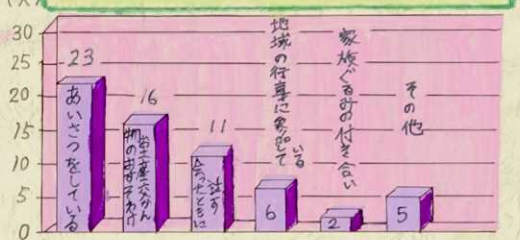 30
25
20
15
10
5
0
23
あいさつをしている
16
お土産交かん
物のおすそわけ
11
会ったときに
話す
地域の行事に参加して
いる
6
家族ぐるみの付き合い
2
その他
5